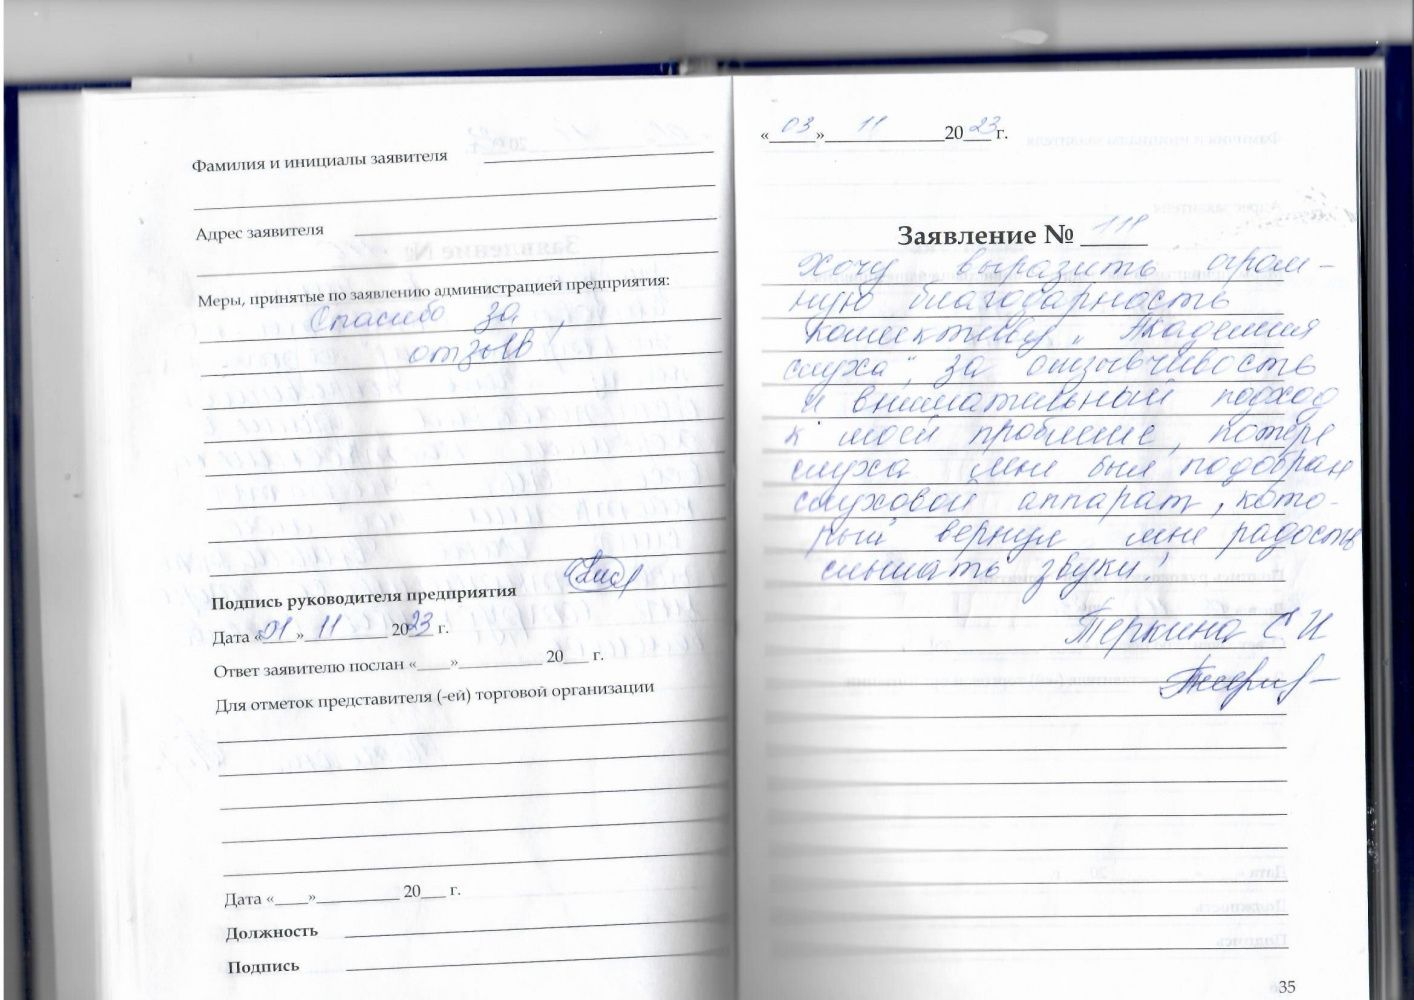 Фамилия и инициалы заявителя
Адрес заявителя
Меры, принятые по заявлению администрацией предприятия:
Спасибо за
отзыв!
Подпись руководителя предприятия
Дата «01» 11 2023 г.
Ответ заявителю послан «____»__________ 20___ г.
Для отметок представителя (-ей) торговой организации
Дата «____»__________ 20___ г.
Должность
Подпись
«03» 11 2023г.
Заявление №
Хочу выразить огром-
ную благодарность
коллективу „Академия
слуха", за отзывчивость
и внимательный подход
к моей проблеме, потере
слуха мне был подобран
слуховой аппарат, кото-
рый вернул мне радость
слышать звуки!
Теркина С И
35